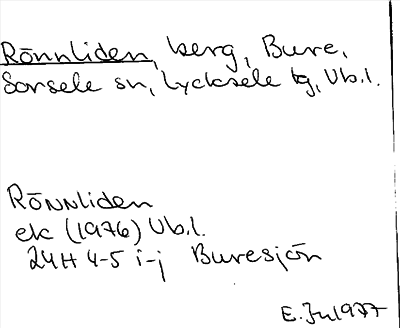 Rönnliden, berg, Bure,
Sorsele sn, Lycksele tg, Vb.l.
RÖNNLIDEN
ek (1976) Vb.l.
24H 4-5 i-j Buresjön
E. Ju 1977